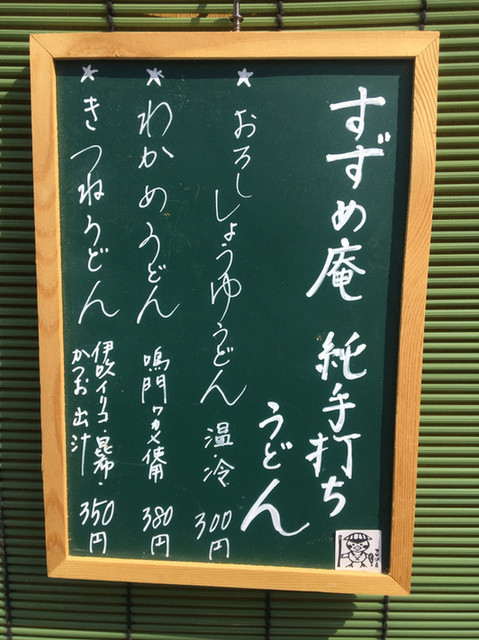 すずめ庵 純手打ち
うどん
★ おろししょうゆうどん 温・冷 300円
★ わかめうどん 鳴門ワカメ使用 380円
★ きつねうどん 伊吹イリコ・昆布・
かつお出汁 350円